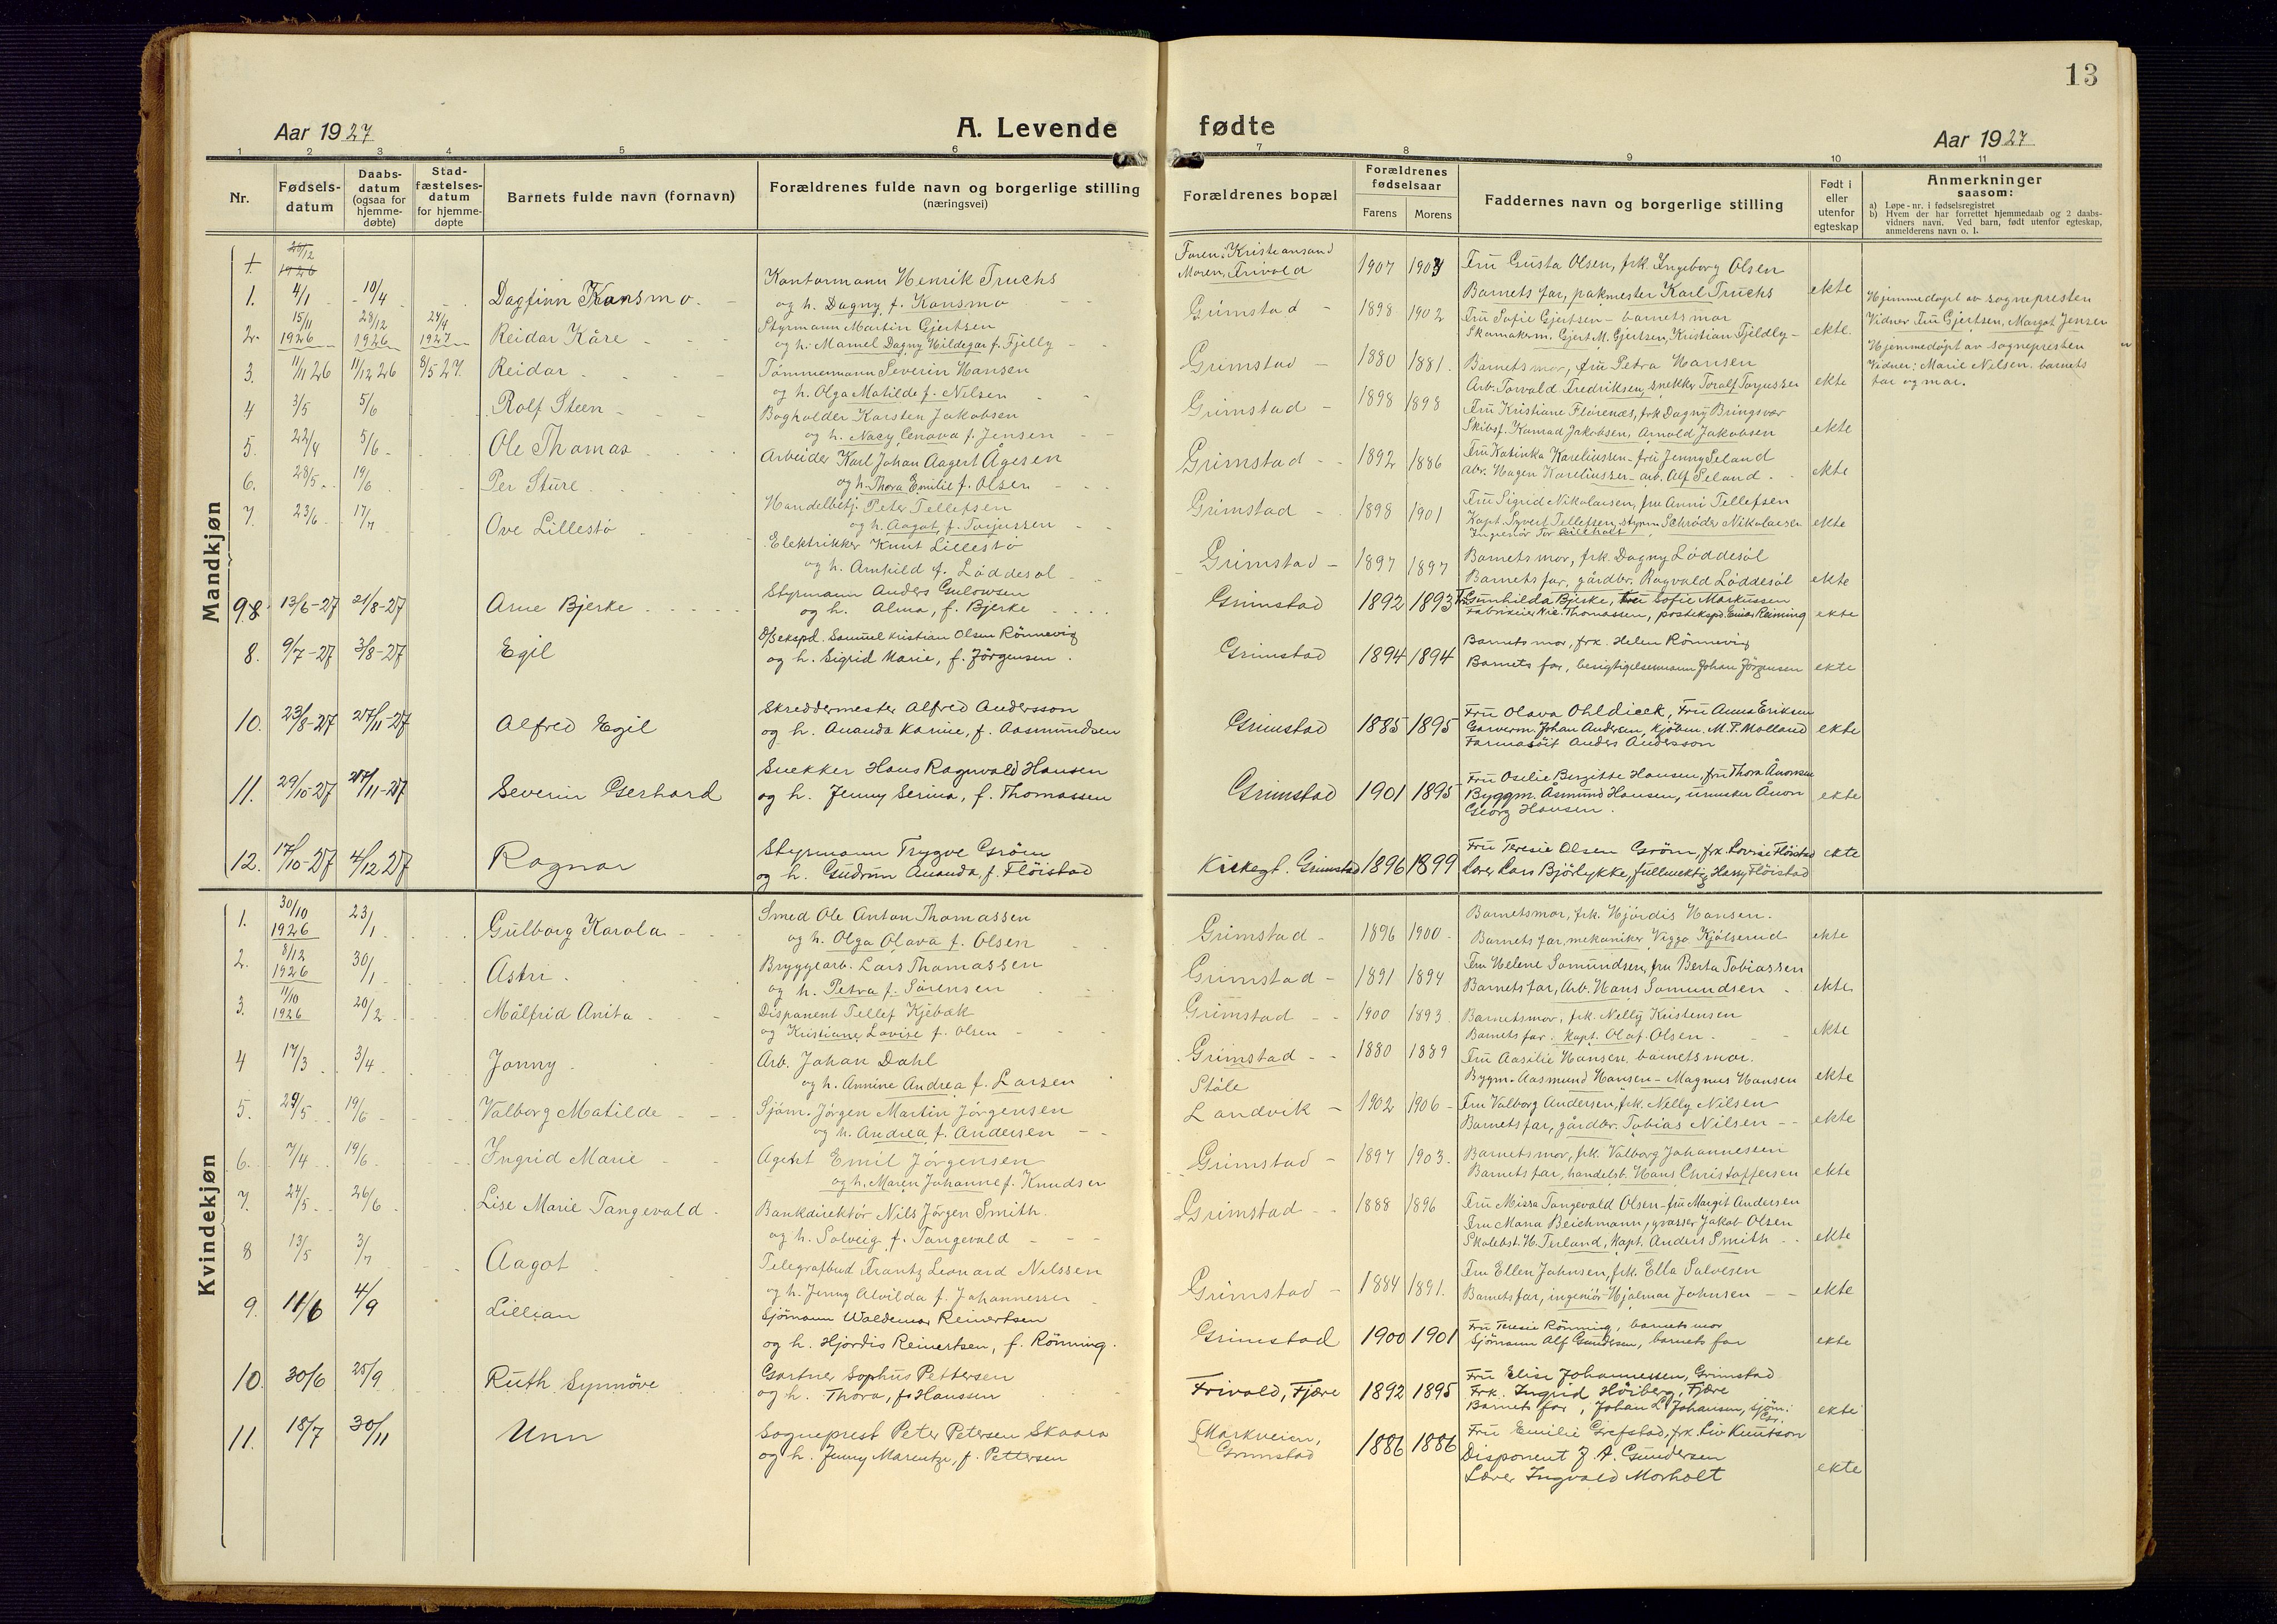 13
Aar 1927
A. Levende fødte
Aar 1927
1 2 3 4 5 6 7 8 9 10 11
Nr.
Fødsels-
datum
Daabs-
datum
(ogsaa for
hjemme-
døbte)
Stad-
fæstelses-
datum
for hjemme-
døpte
Barnets fulde navn (fornavn)
Forældrenes fulde navn og borgerlige stilling
(næringsvei)
Forældrenes bopæl
Forældrenes
fødselsaar
Farens
Morens
Faddernes navn og borgerlige stilling
Født i
eller
utenfor
egteskap
Anmerkninger
saasom:
a) Løpe-nr. i fødselsregistret
b) Hvem der har forrettet hjemmedaab og 2 daabs-
vidners navn. Ved barn, født utenfor egteskap,
anmelderens navn o. l.
Mandkjøn
1. 4/1 10/4 Dagfinn Kansmo
Kontormann Henrik Truchs
og h. Dagny f. Kansmo
Faren: Kristiansand
Moren, Frivold
1907 1904
Fru Gusta Olsen, frk. Ingeborg Olsen
Barnets far, pakmester Karl Truchs
ekte
2. 15/11 1926 28/12 1926 24/4 1927 Reidar Kåre
Styrmann Martin Gjertsen
og h. Mamel Dagny Hildegar f. Fjelly
Grimstad
1898 1902
Fru Sofie Gjertsen - barnets mor
Skomakerm. Gjert M. Gjertsen, Kristian Fjeldly
ekte
Hjemmedøpt av sognepresten
Vidner Fru Gjertsen, Margot Jensen
3. 11/11 26 11/12 26 8/5 27. Reidar
Tømmermann Severin Hansen
og h. Olga Matilde f. Nilsen
Grimstad
1880 1881.
Barnets mor, fru Petra Hansen
Arb. Torvald Fredriksen, snekker Toralf Torjussen
ekte
Hjemmedøpt av sognepresten
Vidner: Marie Nelsen. barnets
far og mor.
4 3/5 5/6 Rolf Steen
Bogholder Karsten Jakobsen
og h. Nacy Lenova f. Jensen
Grimstad
1898 1898
Fru Kristiane Florenæs, frk Dagny Bringsvær
Skibsf. Konrad Jakobsen, Arnold Jakobsen
ekte
5. 22/4 5/6 Ole Thomas
Arbeider Karl Johan Aagert Ågesen
og h. Thora Emilie f. Olsen
Grimstad
1892 1886
Fru Katinka Kareliussen - fru Jenny Seland
Arb. Hagen Kareliussen - arb. Alf Seland.
ekte
6. 28/5 19/6 Per Sture
Handelbetj. Peter Tellefsen
og h. Aagot f. Torjussen
Grimstad
1898 1901
Fru Sigrid Nikolaisen, fru Anni Tellefsen
Kapt. Syvert Tellefsen, styrm Schrøder Nikolaisen
ekte
7. 23/6 17/7 Ove Lillestö
Elektrikker Knut Lillestö
og h. Arnhild f. Löddesøl
Grimstad
1897 1897
Barnets mor, frk. Dagny Löddesöl
Barnets far, gårdbr. Ragvald Löddesöl
ekte
9. 13/6-27 21/8-27 Arne Bjerke
Styrmann Anders Gulowsen
og h. Alma, f. Bjerke
Grimstad
1892 1893
Gunhilda Bjerke, fru Sofie Markussen
Fabrikeier Nic. Thomassen, postekspd. Einar Reiming
ekte
8. 9/7-27 3/8-27 Egil
D/S ekspd. Samuel Kristian Olsen Rönnevig
og h. Sigrid Marie, f. Jörgensen.
Grimstad
1894 1894
Barnets mor, frk. Helen Rönnevig
Barnets far, besigtigelsesmann Johan Jörgensen
ekte
10. 23/8-27 27/11-27 Alfred Egil
Skreddermester Alfred Andersson
og h. Ananda Karine, f. Aasmundsen
Grimstad
1885 1895
Fru Olava Ohldieck, Fru Anna Eriksen
Garverm. Johan Andersen, kjöbm. M. T. Molland
Farmasöit Anders Andersson
ekte
11. 29/10-27 27/11-27 Severin Gerhard
Snekker Hans Ragnvald Hansen
og h. Jenny Serina, f. Thomassen
Grimstad
1901 1895
Fru Oselie Birgitte Hansen, fru Thora Ånonsen
Byggm. Åsmund Hansen, urmaker Ånon
Georg Hansen.
ekte
12. 17/10-27 4/12 27 Ragnar
Styrmann Trygve Gröm
og h. Gudrun Ananda, f. Flöistad
Kirkegt. Grimstad
1896 1899
Fru Teresie Olsen Gröm, frk. Lovise Flöistad
Lærer Lars Björlykke, fullmektig Harry Flöistad
ekte
Kvindekjøn
1. 30/10 1926 23/1 Gulborg Karola
Smed Ole Anton Thomassen
og h. Olga Olava f. Olsen
Grimstad
1896 1900
Barnets mor, frk. Hjördis Hansen.
Barnets far, mekaniker Viggo Kjölserud
ekte
2. 8/12 1926 30/1 Astri.
Bryggearb. Lars Thomassen
og h. Petra f. Sörensen
Grimstad
1891 1894
Fru Helene Samundsen, fru Berta Tobiassen
Barnets far, Arb. Hans Samundsen
ekte
3. 11/10 1926 20/2 Målfrid Anita
Disponent Tellef Kjebæk
og Kristiane Lovise f. Olsen
Grimstad
1900 1893
Barnets mor, frk. Nelly Kristensen
Barnets far. Kapt. Olaf Olsen.
ekte
4 17/3 3/4 Jonny
Arb. Johan Dahl
og h. Annine Andrea f. Larsen
Grimstad
1880 1889
Fru Aasilie Hansen, barnets mor.
Bygm. Aasmund Hansen - Magnus Hansen
ekte
5. 29/5 19/6 Valborg Matilde
Sjöm. Jörgen Martin Jörgensen
og h. Andrea f. Andersen
Støle
Landvik
1902 1906
Fru Valborg Andersen, frk. Nelly Nilsen
Barnets far, gårdbr. Tobias Nilsen
ekte
6. 7/4 19/6 Ingrid Marie
Agent Emil Jörgensen
og h. Maren Johanne f. Knudsen
Grimstad
1897 1903.
Barnets mor, frk. Valborg Johannessen
Barnets far, handelsb. Hans Christoffersen
ekte
7. 24/5 26/6 Lise Marie Tangevald
Bankdirektör Nils Jörgen Smith.
og h. Solveig f. Tangevald
Grimstad
1888 1896
Fru Missa Tangevald Olsen - fru Margit Andersen
Fru Maria Beichmann, grosser Jakob Olsen
Skolebst. H. Terland, kapt. Anders Smith
ekte
8 13/5 3/7 Aagot
Telegrafbud Frantz Leonard Nilssen
og h. Jenny Alvilda f. Johannessen
Grimstad
1884 1891.
Fru Ellen Johnsen, frk. Ella Salvesen
Barnets far, ingeniör Hjalmar Johnsen
ekte
9. 11/6 4/9 Lillian
Sjömann Waldemar Reinertsen
og h. Hjördis Reinertsen, f. Rönning.
Grimstad
1900 1901
Fru Teresie Rönning, barnets mor
Sjömann Alf Gundersen, barnets far
ekte
10 30/6 25/9 Ruth Synnöve
Gartner Sophus Pettersen
og h. Thora, f. Hanssen
Frivold, Fjære
1892 1895
Fru Elise Johannessen, Grimstad
Frk. Ingrid Höiberg, Fjære
Barnets far, Johan L. Johansen, sjöm.
ekte
11. 18/7 30/11 Unn
Sogneprest Peter Petersen Skaara
og h. Jenny Marentze, f. Pettersen
Markveien,
Grimstad
1886 1886
Fru Emilie Grefstad, frk. Liv Knutson
Disponent J. A. Gundersen
Lærer Ingvald Morholt
ekte